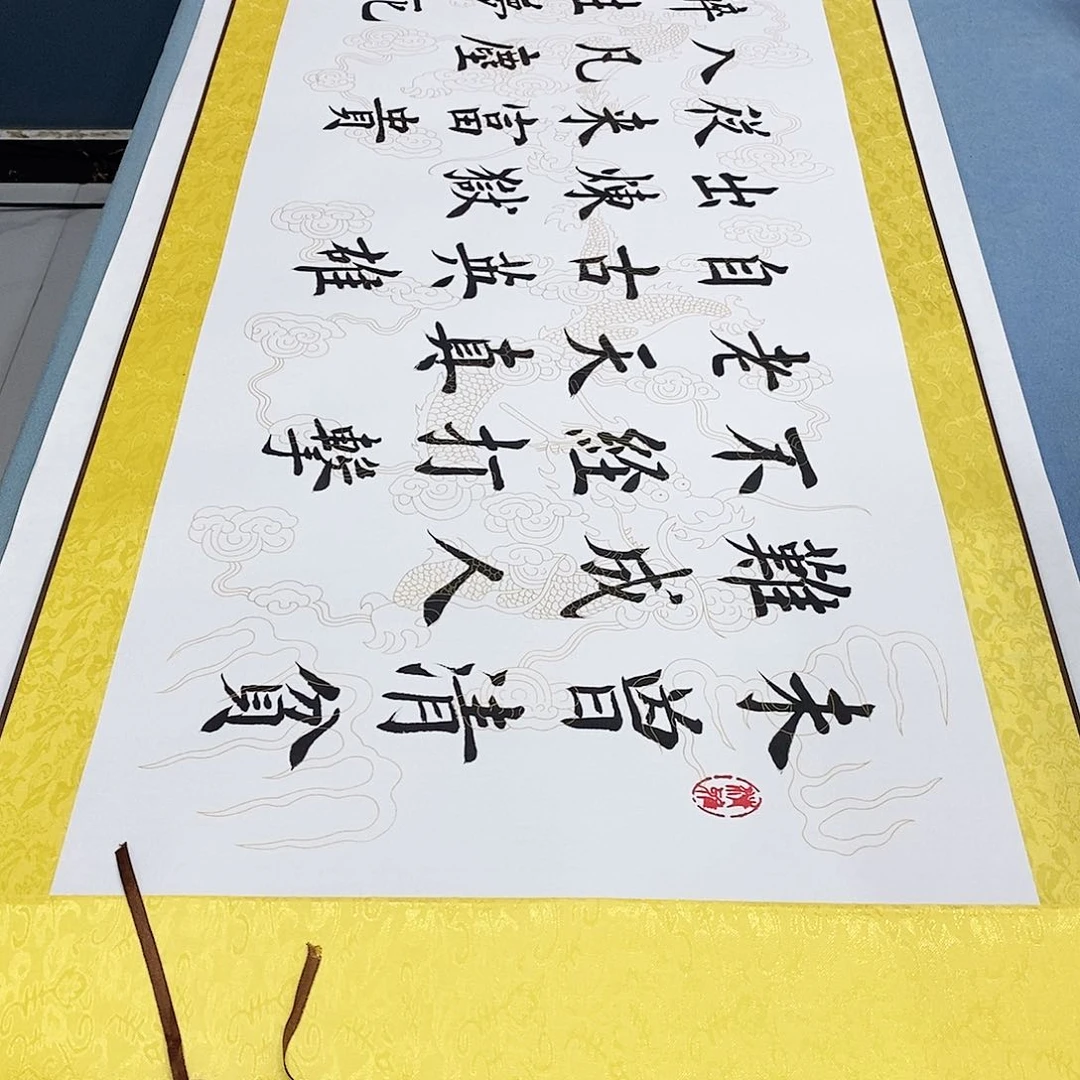 未嘗清貧
難成人
不経打擊
老天真
自古英雄
出煉獄
從来富貴
入凡塵
醉生夢死